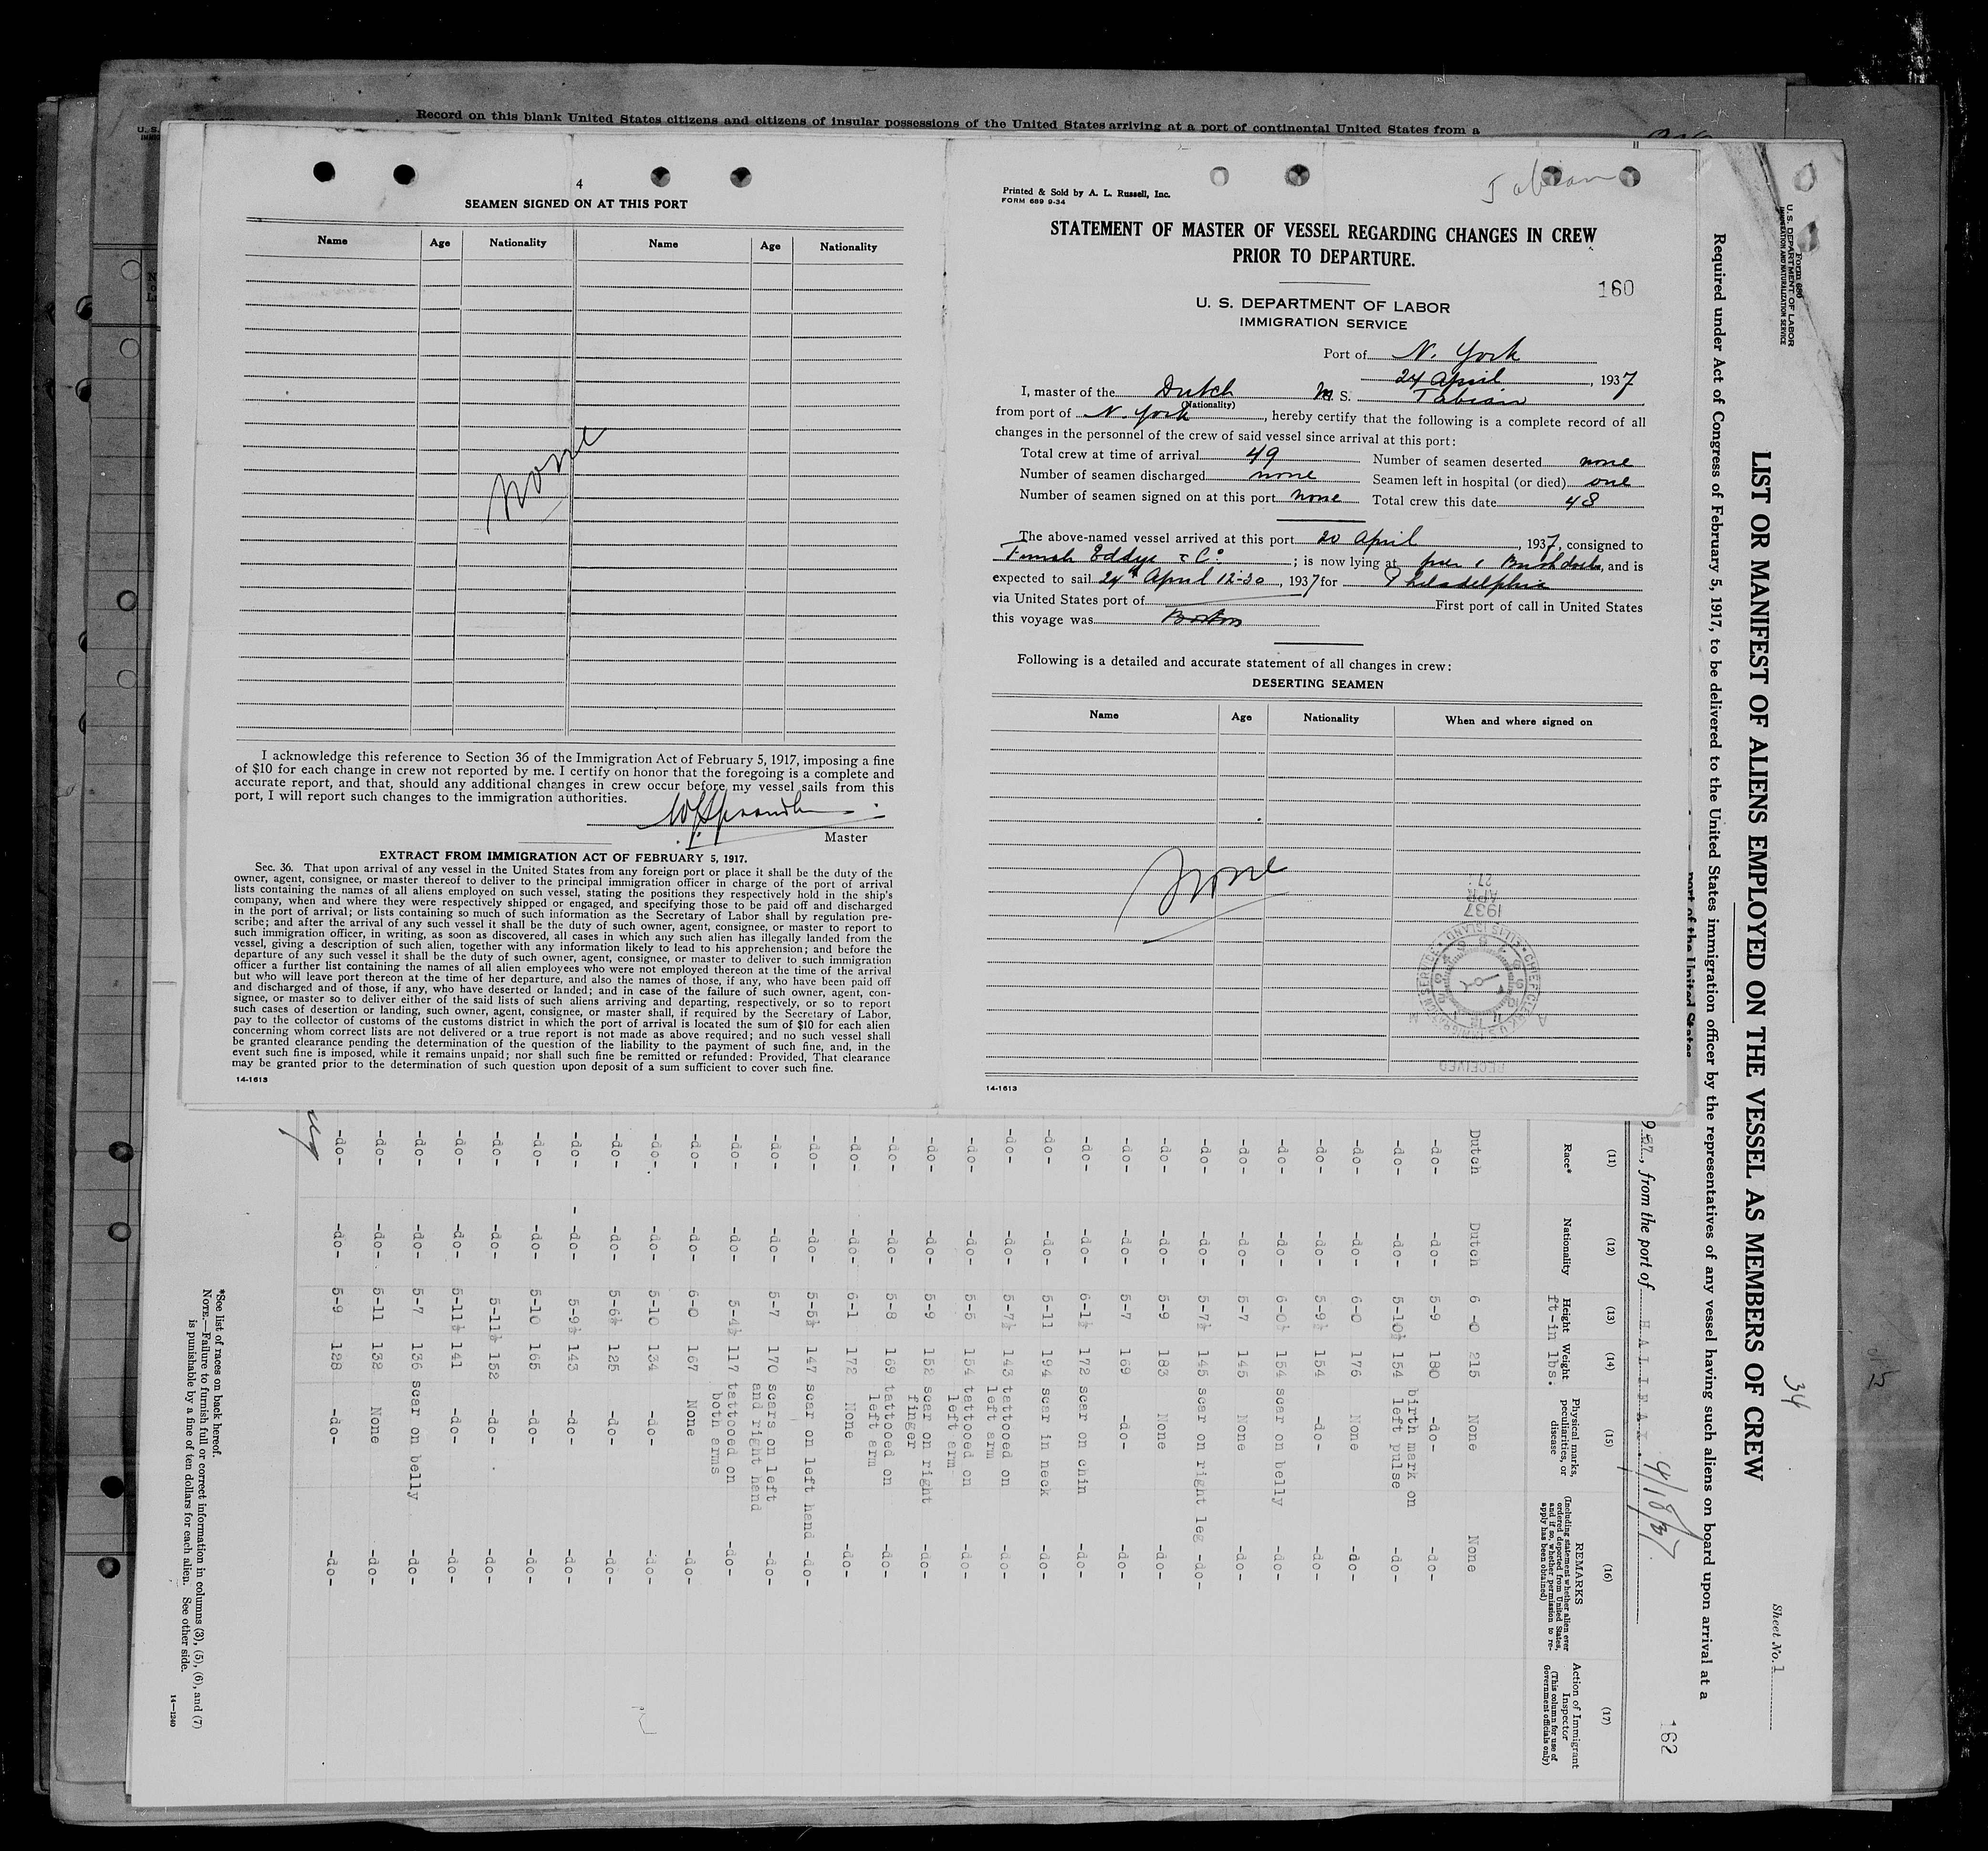 Record on this blank United States citizens and citizens of insular possessions of the United States arriving at a port of continental United States from a
4
SEAMEN SIGNED ON AT THIS PORT
Name Age Nationality Name Age Nationality
None
I acknowledge this reference to Section 36 of the Immigration Act of February 5, 1917, imposing a fine
of $10 for each change in crew not reported by me. I certify on honor that the foregoing is a complete and
accurate report, and that, should any additional changes in crew occur before my vessel sails from this
port, I will report such changes to the immigration authorities.
Master
EXTRACT FROM IMMIGRATION ACT OF FEBRUARY 5, 1917.
Sec. 36. That upon arrival of any vessel in the United States from any foreign port or place it shall be the duty of the
owner, agent, consignee, or master thereof to deliver to the principal immigration officer in charge of the port of arrival
lists containing the names of all aliens employed on such vessel, stating the positions they respectively hold in the ship's
company, when and where they were respectively shipped or engaged, and specifying those to be paid off and discharged
in the port of arrival; or lists containing so much of such information as the Secretary of Labor shall by regulation pre-
scribe; and after the arrival of any such vessel it shall be the duty of such owner, agent, consignee, or master to report to
such immigration officer, in writing, as soon as discovered, all cases in which any such alien has illegally landed from the
vessel, giving a description of such alien, together with any information likely to lead to his apprehension; and before the
departure of any such vessel it shall be the duty of such owner, agent, consignee, or master to deliver to such immigration
officer a further list containing the names of all alien employees who were not employed thereon at the time of the arrival
but who will leave port thereon at the time of her departure, and also the names of those, if any, who have been paid off
and discharged and of those, if any, who have deserted or landed; and in case of the failure of such owner, agent, con-
signee, or master so to deliver either of the said lists of such aliens arriving and departing, respectively, or so to report
such cases of desertion or landing, such owner, agent, consignee, or master shall, if required by the Secretary of Labor,
pay to the collector of customs of the customs district in which the port of arrival is located the sum of $10 for each alien
concerning whom correct lists are not delivered or a true report is not made as above required; and no such vessel shall
be granted clearance pending the determination of the question of the liability to the payment of such fine, and, in the
event such fine is imposed, while it remains unpaid; nor shall such fine be remitted or refunded: Provided, That clearance
may be granted prior to the determination of such question upon deposit of a sum sufficient to cover such fine.
14-1613
Tabian
Printed & Sold by A. L. Russell, Inc.
FORM 689 9-34
STATEMENT OF MASTER OF VESSEL REGARDING CHANGES IN CREW
PRIOR TO DEPARTURE.
160
U. S. DEPARTMENT OF LABOR
IMMIGRATION SERVICE
Port of N. York
24 April, 1937
I, master of the Dutch M. S. Tabian
(Nationality)
from port of N. York, hereby certify that the following is a complete record of all
changes in the personnel of the crew of said vessel since arrival at this port:
Total crew at time of arrival 49 Number of seamen deserted none
Number of seamen discharged none Seamen left in hospital (or died) one
Number of seamen signed on at this port none Total crew this date 48
The above-named vessel arrived at this port 20 April, 1937, consigned to
Funch Eddye & Co; is now lying at pier 1 Bushdock, and is
expected to sail 24th April 12-30, 1937 for Philadelphia
via United States port of First port of call in United States
this voyage was Boston
Following is a detailed and accurate statement of all changes in crew:
DESERTING SEAMEN
Name Age Nationality When and where signed on
None
1937
APR
27
RECEIVED
14-1613
Form 689
U. S. DEPARTMENT OF LABOR
IMMIGRATION AND NATURALIZATION SERVICE
34
Sheet No. 1
LIST OR MANIFEST OF ALIENS EMPLOYED ON THE VESSEL AS MEMBERS OF CREW
Required under Act of Congress of February 5, 1917, to be delivered to the United States immigration officer by the representatives of any vessel having such aliens on board upon arrival at a
port of the United States
162
937, from the port of HALIFAX. 4/18/37
(11) (12) (13) (14) (15) (16) (17)
Race* Nationality Height ft-in Weight lbs. Physical marks, peculiarities, or disease REMARKS (Including statement whether alien ever ordered deported from United States, and if so, whether permission to re-apply has been obtained) Action of Immigrant Inspector (This column for use of Government officials only)
Dutch Dutch 6 -0 215 None None
-do- -do- 5-9 180 -do- -do-
-do- -do- 5-10½ 154 birth mark on left pulse -do-
-do- -do- 6-0 176 None -do-
-do- -do- 5-9½ 154 -do- -do-
-do- -do- 6-0½ 154 scar on belly -do-
-do- -do- 5-7 145 None -do-
-do- -do- 5-7½ 145 scar on right leg -do-
-do- -do- 5-9 183 None -do-
-do- -do- 5-7 169 -do- -do-
-do- -do- 6-1½ 172 scar on chin -do-
-do- -do- 5-11 194 scar in neck -do-
-do- -do- 5-7½ 143 tattooed on left arm -do-
-do- -do- 5-5 154 tattooed on left arm -do-
-do- -do- 5-9 152 scar on right finger -do-
-do- -do- 5-8 169 tattooed on left arm -do-
-do- -do- 6-1 172 None -do-
-do- -do- 5-5½ 147 scar on left hand -do-
-do- -do- 5-7 170 scars on left and right hand -do-
-do- -do- 5-4½ 117 tattooed on both arms -do-
-do- -do- 6-0 167 None -do-
-do- -do- 5-10 134 -do- -do-
-do- -do- 5-6½ 125 -do- -do-
-do- -do- 5-9½ 143 -do- -do-
-do- -do- 5-10 165 -do- -do-
-do- -do- 5-11½ 152 -do- -do-
-do- -do- 5-11½ 141 -do- -do-
-do- -do- 5-7 136 scar on belly -do-
-do- -do- 5-11 132 None -do-
-do- -do- 5-9 128 -do- -do-
*See list of races on back hereof.
NOTE.—Failure to furnish full or correct information in columns (3), (5), (6), and (7)
is punishable by a fine of ten dollars for each alien. See other side.
14-1240